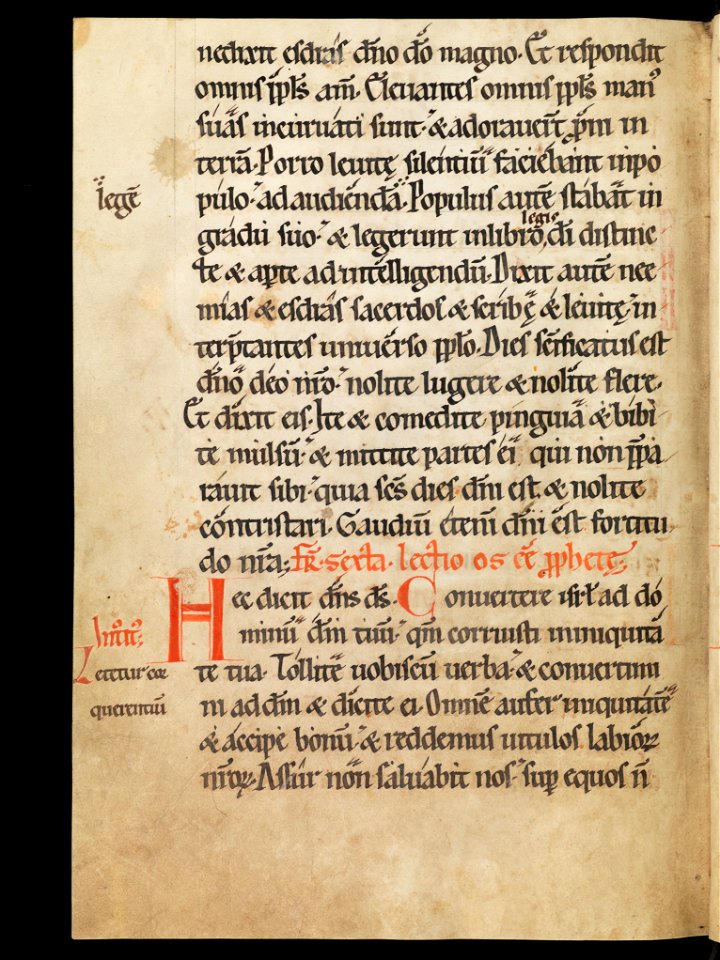 nedixit esdras dn̄o dō magno. Et respondit
omnis ppl̄s am̄. Eleuantes omnis ppl̄s man᷒
suas incuruati sunt. & adorauer̄t p̄m in
terra. Porro leuitę silentiū faciebant inpo
legē
pulo. ad audiendā. Populus autē stabat in
legis
gradu suo. & legerunt inlibro, dī distinc
te & apte ad intelligendū. Dixit autē nee
mias & esdras sacerdos & scribę & leuitę. in
terp̄tantes uniuerso pplo. Dies sc̄ificatus est
dn̄o deo nr̄o. nolite lugere & nolite flere.
Et dixit eis. Ite & comedite pinguia & bibi
te mulsū. & mittite partes ei qui non p̄pa
rauit sibi. quia sc̄s dies dn̄i est. & nolite
contristari. Gaudiū etenī dn̄i est fortitu
do nr̄a; Fr̄. sexta. lectio oseę pphetę;
Hec dicit dn̄s ds̄. Conuertere isrl̄ ad do
minū dm̄ tuū. qm̄ corruisti in iniquita
Intr᷒oit᷒:
te tua. Tollite uobiscū uerba. & conuertimi
Letetur cor
ni ad dm̄ & dicite ei. Omnē aufer iniquitatē
querentiū
& accipe bonū. & reddemus uitulos labioꝝ
nr̄oꝝ. Assur non saluabit nos. sup equos n̄